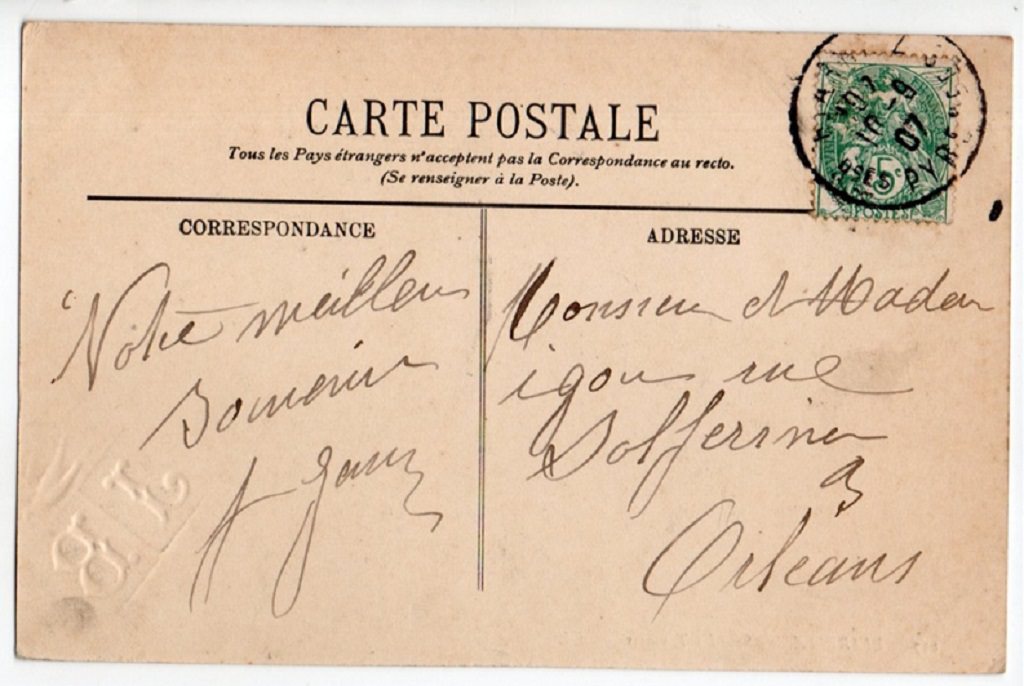 CARTE POSTALE
Tous les Pays étrangers n'acceptent pas la Correspondance au recto.
(Se renseigner à la Poste).
CORRESPONDANCE
Notre meilleur
Souvenir
A
ADRESSE
Monsieur et Madame
rue
Solferino
Orléans
5c
POSTES
07
BSES PYR